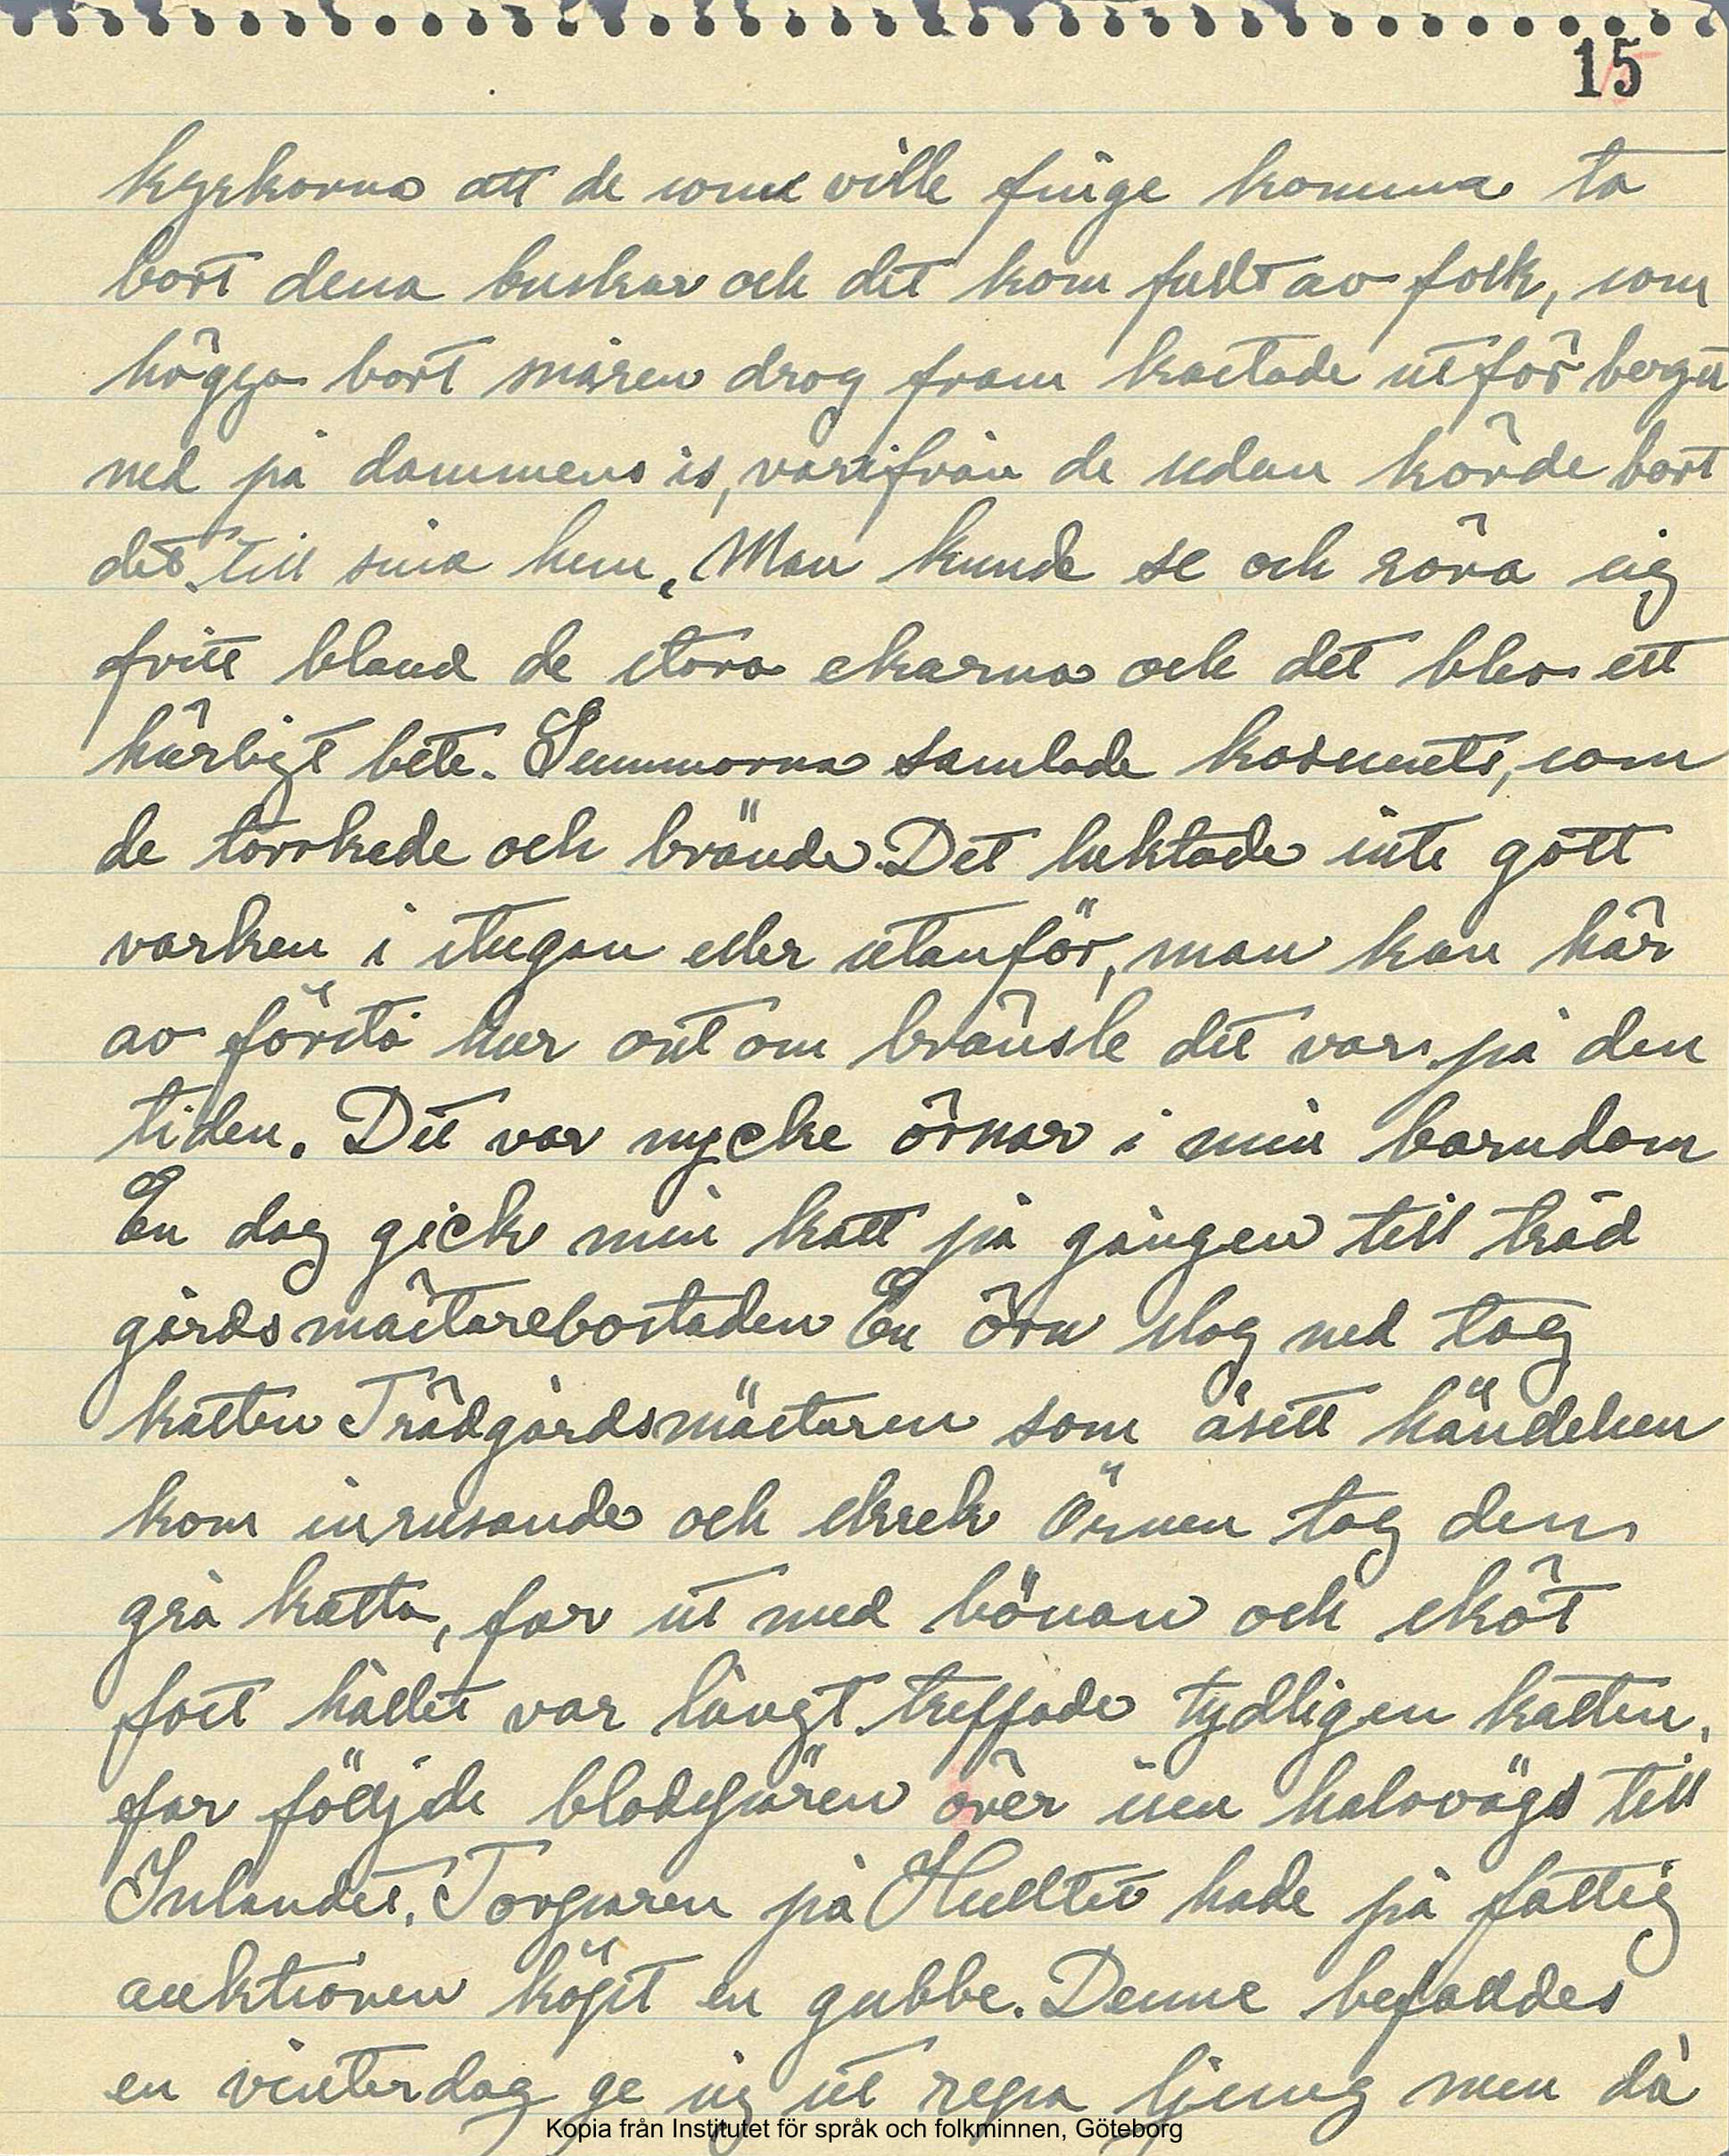 15
kyrkorna att de som ville finge komma ta
bort dena buskar och det kom fullt av folk, som
högg bort snåren drog fram kastade utför berget
ned på dammens is, varifrån de sedan körde bort
det till sina hem. Man kunde se och röra sig
fritt bland de stora ekarna och det blev ett
härligt bete. Summorna samlade kosments, som
de torrkade och brände. Det luktade inte gott
varken i stugan eller utanför, man kan här
av förstå hur ont om bränsle det var på den
tiden. Det var mycke örnar i min barndom
En dag gick min katt på gången till träd
gårdsmästarebostaden En örn slog ned tog
katten Trädgårdsmästaren som åsett händelsen
kom inrusande och skrek Örnen tog den
grå katta, far ut med bössan och sköt
fast hållet var långt träffade tydligen katten,
far följde blodspåren över isen halvvägs till
Inlandet. Torparen på Hultet hade på fattig
auktionen köpt en gubbe. Denne befalldes
en vinterdag ge sig ut repa ljung men då
Kopia från Institutet för språk och folkminnen, Göteborg